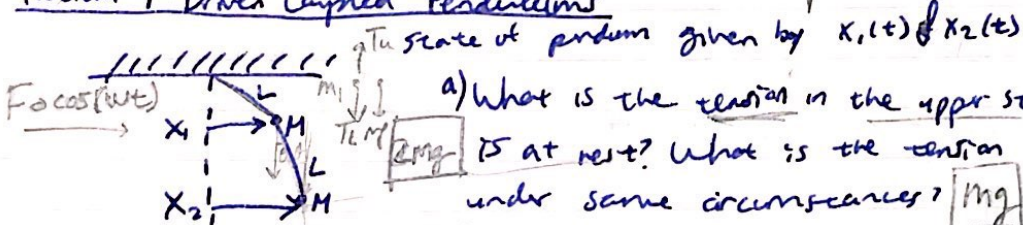 Driven Coupled Pendulums
State of pendum given by X₁(t) & X₂(t)
Tu
F₀cos(wt)
m₁
L
TL mg
a) What is the tension in the upper st
X₁
M
2mg
is at rest? What is the tension
L
X₂
M
under same circumstances?
mg